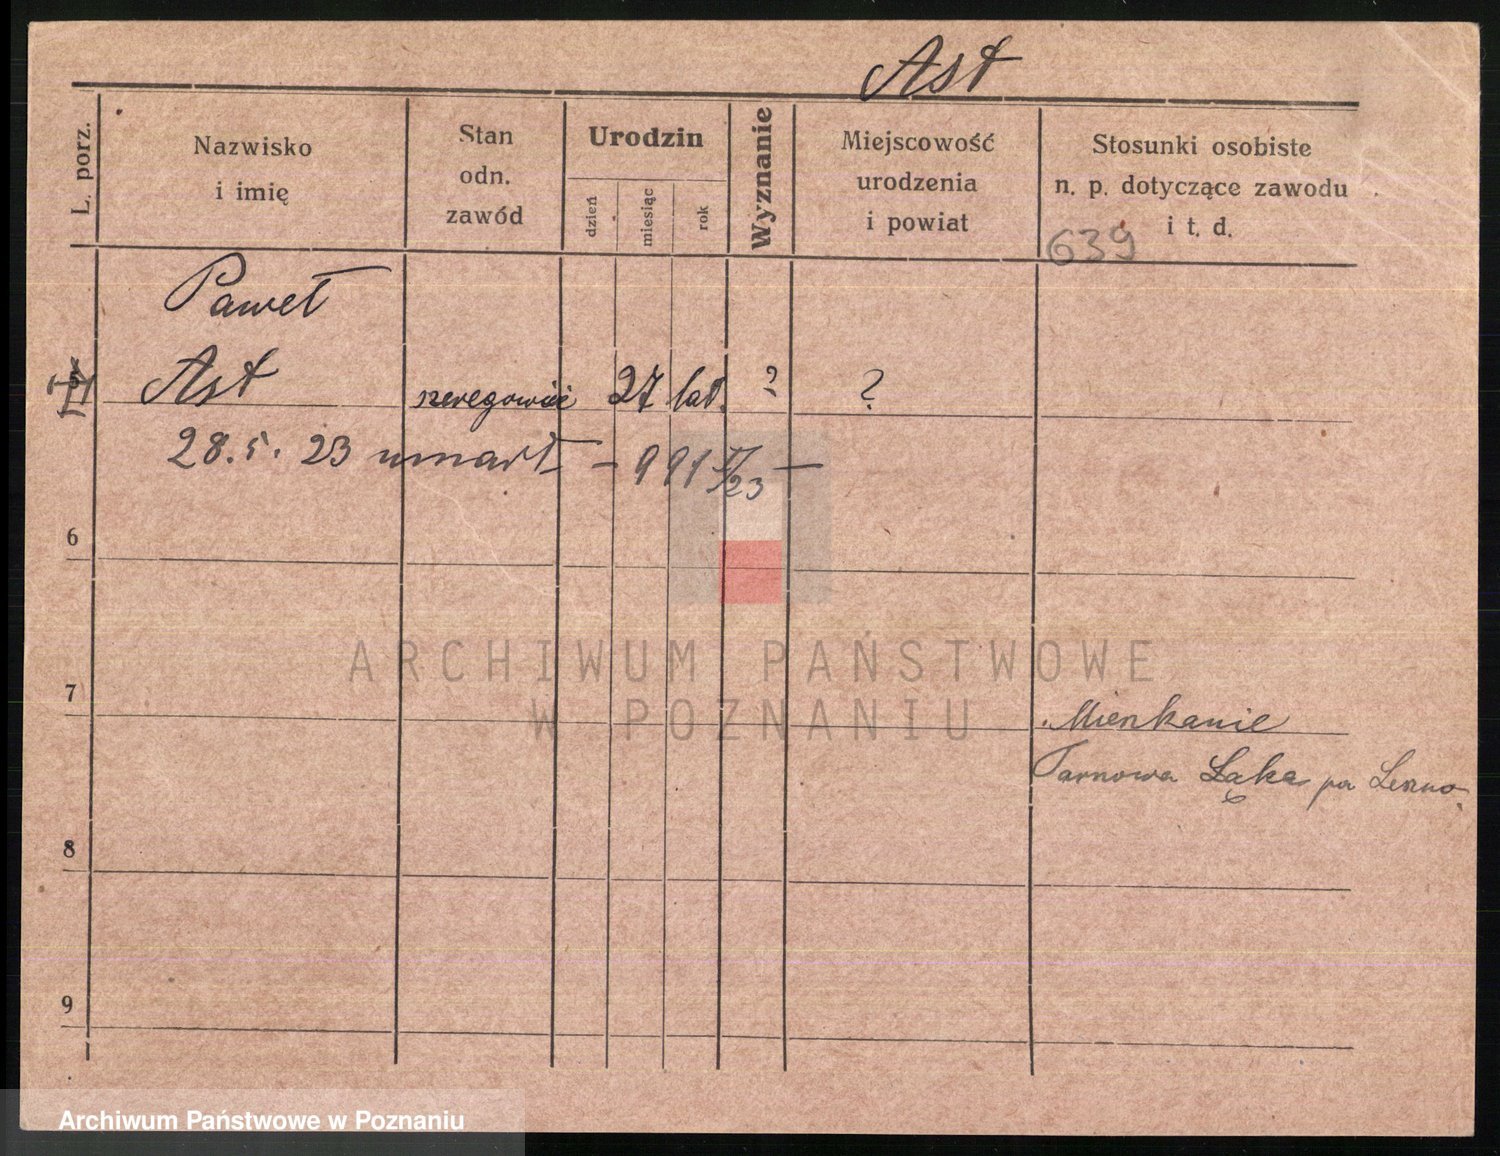 Ast
L. porz.
Nazwisko
i imię
Stan
odn.
zawód
Urodzin
dzień
miesiąc
rok
Wyznanie
Miejscowość
urodzenia
i powiat
Stosunki osobiste
n. p. dotyczące zawodu
i t. d.
639
Paweł
Ast szeregowiec 27 lat. ? ?
28.5.23 umarł – 991 V/23 –
6
ARCHIWUM PAŃSTWOWE
W POZNANIU
7
Mieszkanie
Tarnowa Łąka Leszno
8
9
Archiwum Państwowe w Poznaniu